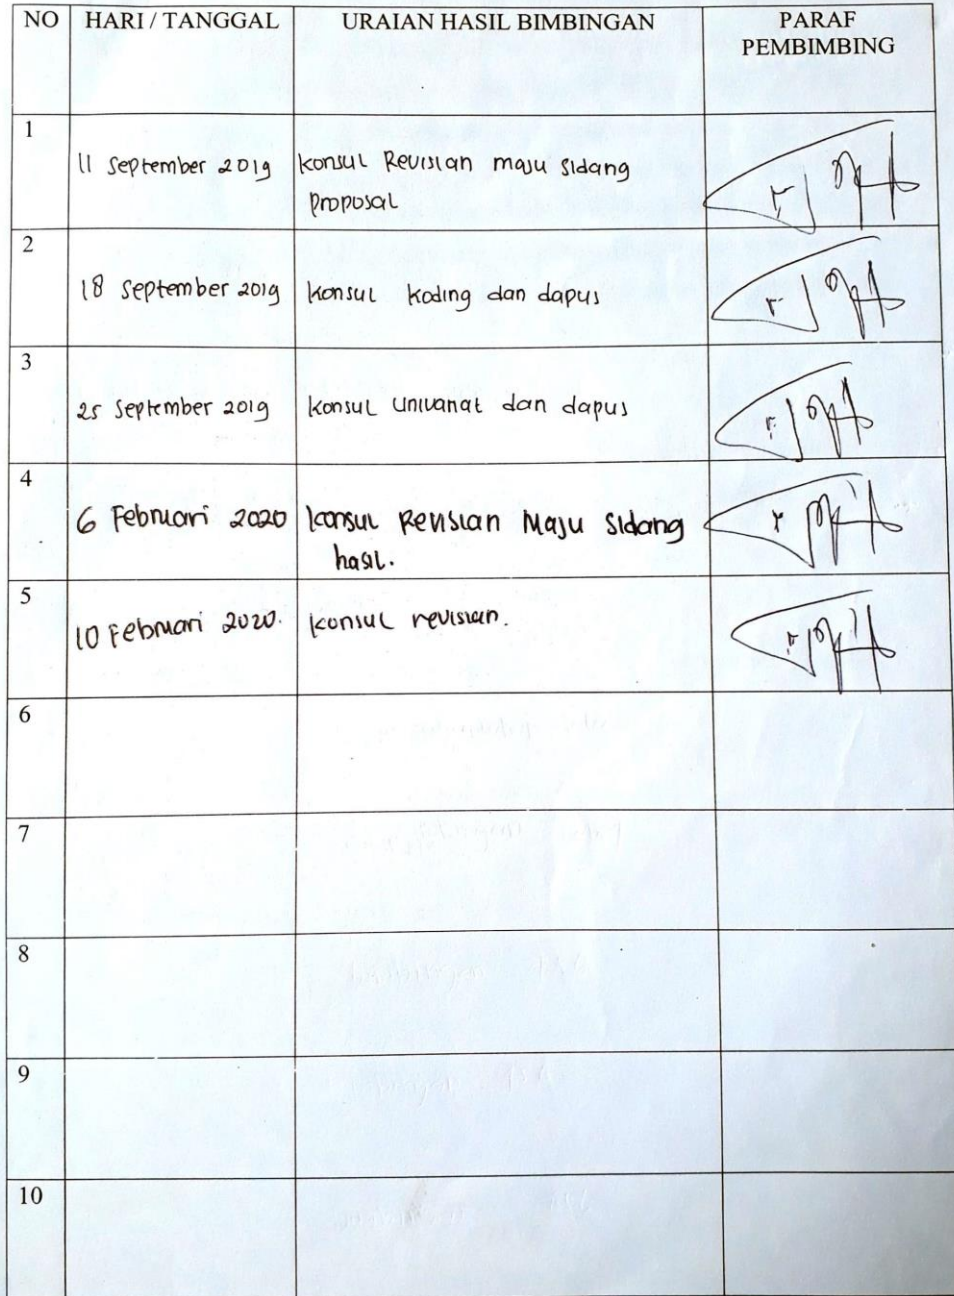 NO HARI / TANGGAL URAIAN HASIL BIMBINGAN PARAF
PEMBIMBING
1
11 September 2019 konsul Revisian maju sidang
proposal
2
18 September 2019 konsul koding dan dapus
3
25 September 2019 konsul univariat dan dapus
4
6 Februari 2020 konsul Revisian Maju Sidang
hasil.
5
10 Februari 2020. konsul revisian.
6
7
8
9
10